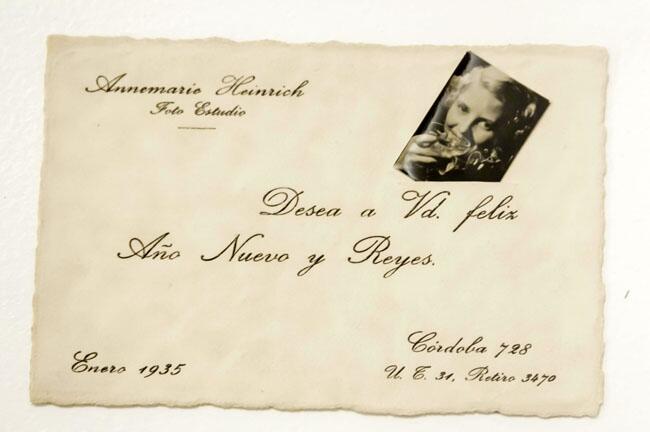 Annemarie Heinrich
Foto Estudio
Desea a Vd. feliz
Año Nuevo y Reyes.
Córdoba 728
Enero 1935
U. T. 31, Retiro 3470